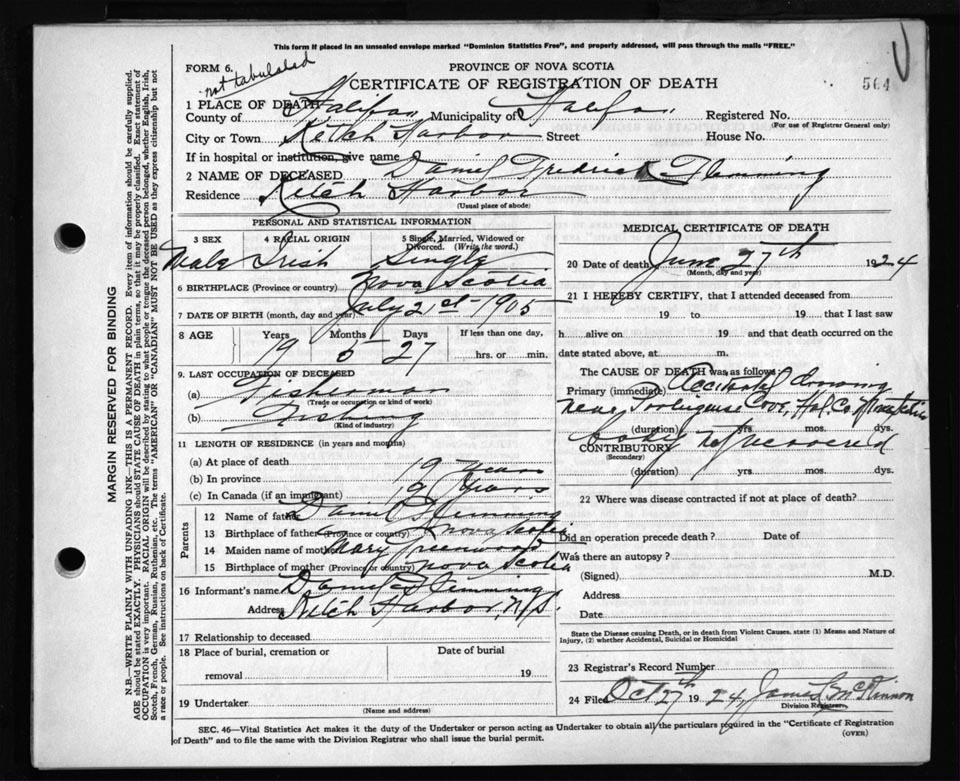 This form if placed in an unsealed envelope marked "Dominion Statistics Free", and properly addressed, will pass through the mails "FREE."
FORM 6.
not tabulated
PROVINCE OF NOVA SCOTIA
CERTIFICATE OF REGISTRATION OF DEATH
564
1 PLACE OF DEATH
County of Halifax Municipality of Halifax Registered No.
(For use of Registrar General only)
City or Town Ketch Harbor Street House No.
If in hospital or institution, give name
2 NAME OF DECEASED Daniel Fredrick Flemming
Residence Ketch Harbor
(Usual place of abode)
PERSONAL AND STATISTICAL INFORMATION
3 SEX 4 RACIAL ORIGIN 5 Single, Married, Widowed or Divorced. (Write the word.)
Male Irish Single
6 BIRTHPLACE (Province or country) Nova Scotia
7 DATE OF BIRTH (month, day and year) July 21st 1905
8 AGE Years Months Days If less than one day,
19 5 27 hrs. or min.
9. LAST OCCUPATION OF DECEASED
(a) Fisherman
(Trade or occupation or kind of work)
(b) Fishing
(Kind of industry)
11 LENGTH OF RESIDENCE (in years and months)
(a) At place of death 19 years
(b) In province
(c) In Canada (if an immigrant) 19 years
Parents
12 Name of father Daniel Flemming
13 Birthplace of father (Province or country) Nova Scotia
14 Maiden name of mother Mary Greenwood
15 Birthplace of mother (Province or country) Nova Scotia
16 Informant's name Daniel Flemming
Address Ketch Harbor, N.S.
17 Relationship to deceased
18 Place of burial, cremation or removal Date of burial 19
19 Undertaker
(Name and address)
MEDICAL CERTIFICATE OF DEATH
20 Date of death June 27th 1924
(Month, day and year)
21 I HEREBY CERTIFY, that I attended deceased from
19 to 19 that I last saw
h alive on 19 and that death occurred on the
date stated above, at m.
The CAUSE OF DEATH was as follows
Primary (immediate) Accidental drowning
near Portuguese Cove, Hal. Co.
(duration) yrs. mos. dys.
body not recovered
CONTRIBUTORY
(Secondary)
(duration) yrs. mos. dys.
22 Where was disease contracted if not at place of death?
Did an operation precede death? Date of
Was there an autopsy?
(Signed) M.D.
Address
Date
State the Disease causing Death, or in death from Violent Causes, state (1) Means and Nature of Injury, (2) whether Accidental, Suicidal or Homicidal
23 Registrar's Record Number
24 Filed Oct 27th 1924 James L McKinnon
Division Registrar.
SEC. 46—Vital Statistics Act makes it the duty of the Undertaker or person acting as Undertaker to obtain all the particulars required in the "Certificate of Registration
of Death" and to file the same with the Division Registrar who shall issue the burial permit.
(OVER)
MARGIN RESERVED FOR BINDING
N.B.—WRITE PLAINLY WITH UNFADING INK—THIS IS A PERMANENT RECORD. Every item of information should be carefully supplied.
AGE should be stated EXACTLY. PHYSICIANS should STATE CAUSE OF DEATH in plain terms, so that it may be properly classified. Exact statement of
OCCUPATION is very important. RACIAL ORIGIN will be described by stating to what people or tongue the deceased person belonged, whether English, Irish,
Scotch, French, German, Russian, Ruthenian, etc. The terms "AMERICAN" or "CANADIAN" MUST NOT BE USED as they express citizenship but not
a race or people. See instructions on back of Certificate.